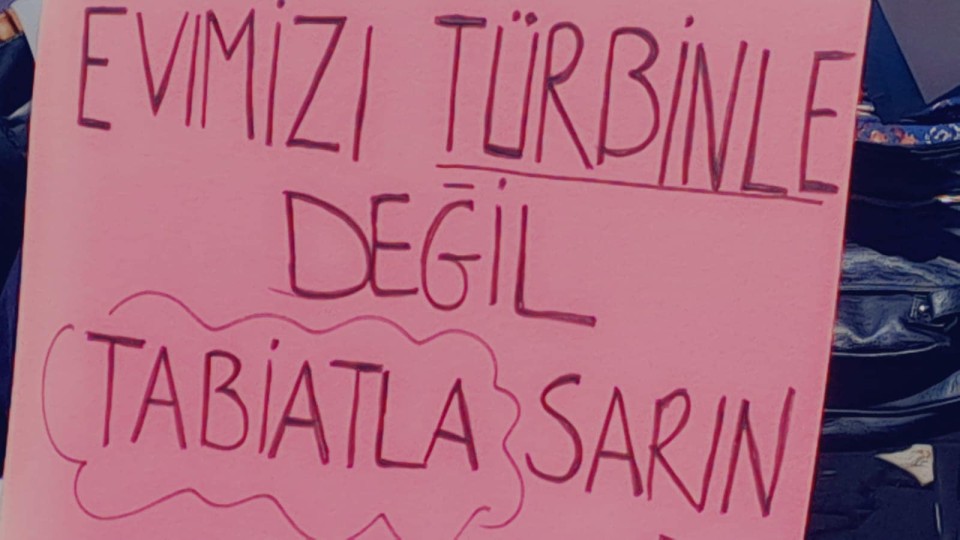 EVİMİZİ TÜRBİNLE
DEĞİL
TABİATLA SARIN